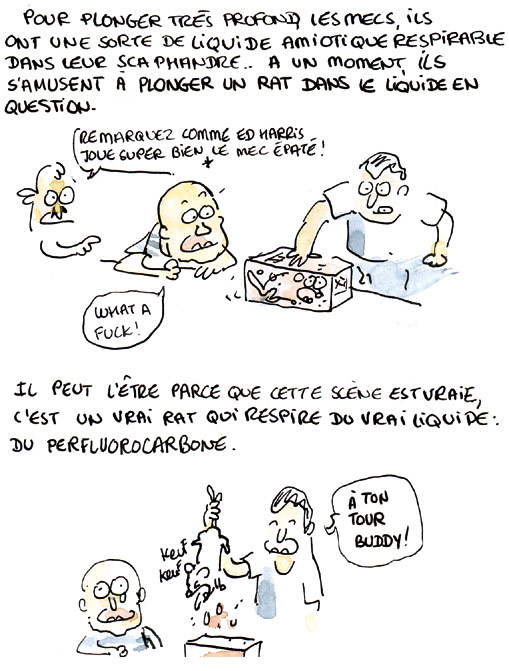 POUR PLONGER TRÈS PROFOND, LES MECS, ILS
ONT UNE SORTE DE LIQUIDE AMIOTIQUE RESPIRABLE
DANS LEUR SCAPHANDRE.. A UN MOMENT, ILS
S'AMUSENT À PLONGER UN RAT DANS LE LIQUIDE EN
QUESTION.
REMARQUEZ COMME ED HARRIS
JOUE SUPER BIEN LE MEC ÉPATÉ!
*
WHAT A
FUCK!
IL PEUT L'ÊTRE PARCE QUE CETTE SCÈNE EST VRAIE,
C'EST UN VRAI RAT QUI RESPIRE DU VRAI LIQUIDE:
DU PERFLUOROCARBONE.
À TON
TOUR
BUDDY!
KEUF
KEUF